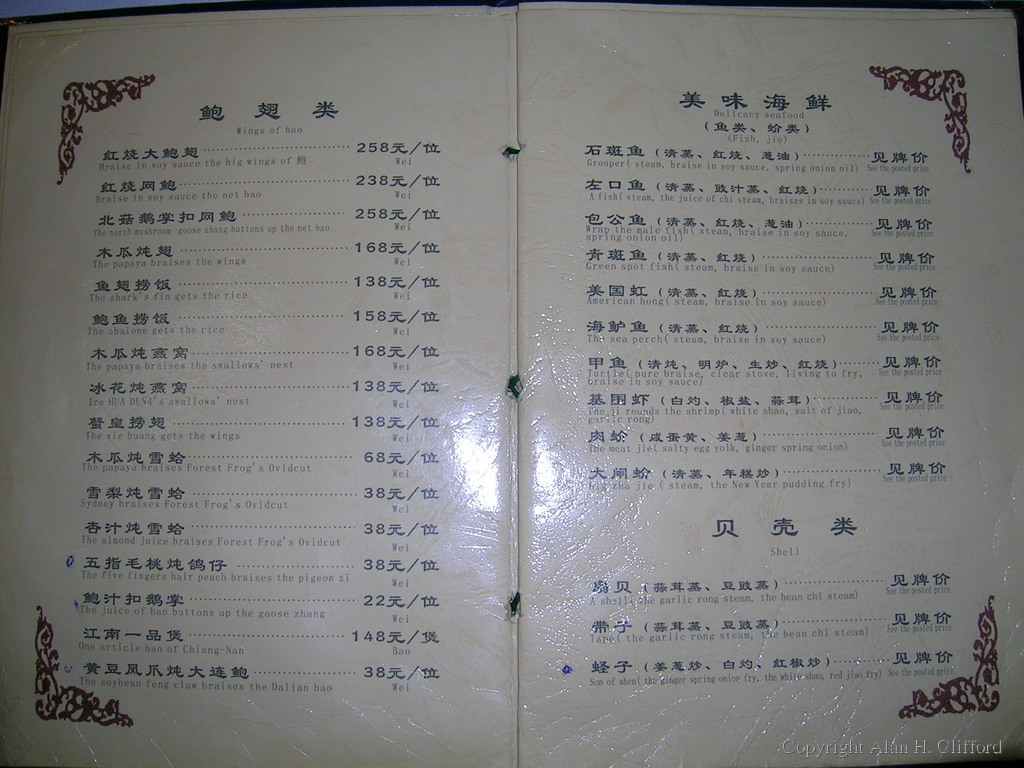 鲍 翅 类
Wings of bao
红烧大鲍翅 258元/位
Braise in soy sauce the big wings of 鲍 Wei
红烧网鲍 238元/位
Braise in soy sauce the net bao Wei
北菇鹅掌扣网鲍 258元/位
The north mushroom goose zhang buttons up the net bao Wei
木瓜炖翅 168元/位
The papaya braises the wings Wei
鱼翅捞饭 138元/位
The shark's fin gets the rice Wei
鲍鱼捞饭 158元/位
The abalone gets the rice Wei
木瓜炖燕窝 168元/位
The papaya braises the swallows' nest Wei
冰花炖燕窝 138元/位
Ice HUA DUN4's swallows' nest Wei
蟹皇捞翅 138元/位
The xie huang gets the wings Wei
木瓜炖雪蛤 68元/位
The papaya braises Forest Frog's Ovidcut Wei
雪梨炖雪蛤 38元/位
Sydney braises Forest Frog's Ovidcut Wei
杏汁炖雪蛤 38元/位
The almond juice braises Forest Frog's Ovidcut Wei
五指毛桃炖鸽仔 38元/位
The five fingers hair peach braises the pigeon zi Wei
鲍汁扣鹅掌 22元/位
The juice of bao buttons up the goose zhang Wei
江南一品煲 148元/煲
One article bao of Chiang-Nan Bao
黄豆凤爪炖大连鲍 38元/位
The soybean feng claw braises the Dalian bao Wei
美味海鲜
Delicacy seafood
(鱼类、蚧类)
(Fish, jie)
石斑鱼(清蒸、红烧、葱油) 见牌价
Grouper( steam, braise in soy sauce, spring onion oil) See the posted price
左口鱼(清蒸、豉汁蒸、红烧) 见牌价
A fish( steam, the juice of chi steam, braises in soy sauce) See the posted price
包公鱼(清蒸、红烧、葱油) 见牌价
Wrap the male fish( steam, braise in soy sauce, See the posted price
spring onion oil)
青斑鱼(清蒸、红烧) 见牌价
Green spot fish( steam, braise in soy sauce) See the posted price
美国虹(清蒸、红烧) 见牌价
American hong( steam, braise in soy sauce) See the posted price
海鲈鱼(清蒸、红烧) 见牌价
The sea perch( steam, braise in soy sauce) See the posted price
甲鱼(清炖、明炉、生炒、红烧) 见牌价
Turtle( pure braise, clear stove, living to fry, See the posted price
braise in soy sauce)
基围虾(白灼、椒盐、蒜茸) 见牌价
The ji rounds the shrimp( white shao, salt of jiao, See the posted price
garlic rong)
肉蚧(咸蛋黄、姜葱) 见牌价
The meat jie( salty egg yolk, ginger spring onion) See the posted price
大闹蚧(清蒸、年糕炒) 见牌价
Big zha jie( steam, the New Year pudding fry) See the posted price
贝 壳 类
Shell
扇贝(蒜茸蒸、豆豉蒸) 见牌价
A shell( the garlic rong steam, the bean chi steam) See the posted price
带子(蒜茸蒸、豆豉蒸) 见牌价
Tape( the garlic rong steam, the bean chi steam) See the posted price
蛏子(姜葱炒、白灼、红椒炒) 见牌价
Son of shen( the ginger spring onior fry, the white shao, red jiao fry) See the posted price
Copyright Alan H. Clifford